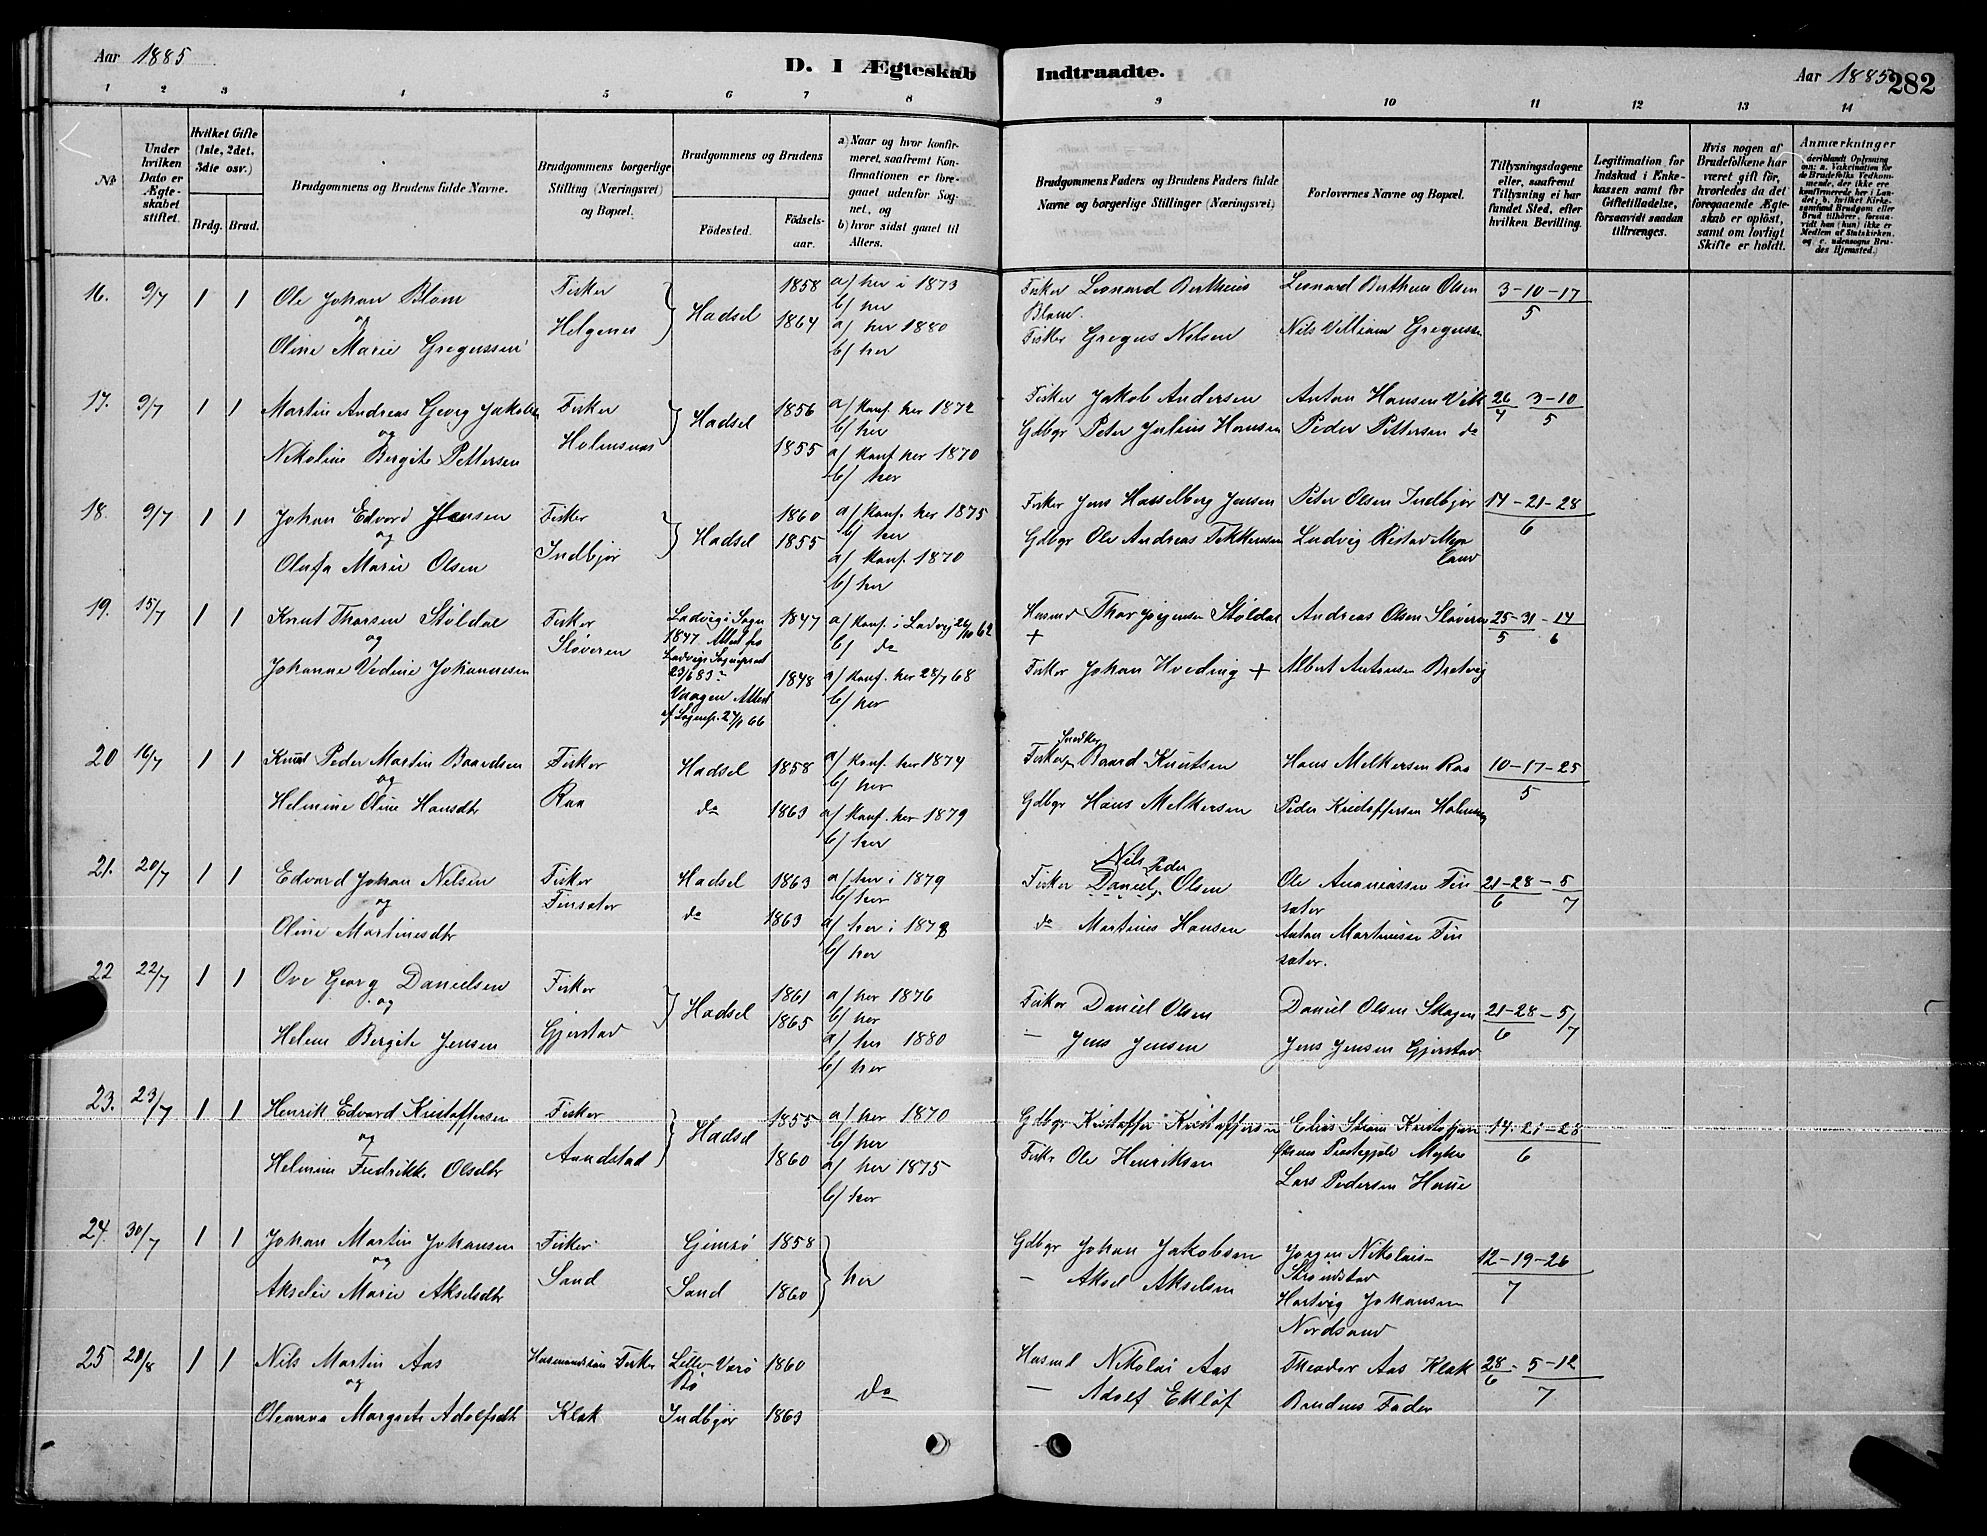 Aar 1885
D. I Ægteskab Indtraadte.
Aar 1885
282
1 2 3 4 5 6 7 8 9 10 11 12 13 14
Nr.
Under hvilken Dato er Ægteskabet stiftet.
Hvilket Gifte (1ste, 2det, 3die osv.)
Brdg. Brud.
Brudgommens og Brudens fulde Navne.
Brudgommens borgerlige Stilling (Næringsvei) og Bopæl.
Brudgommens og Brudens
Fødested.
Fødselsaar.
a) Naar og hvor konfirmeret, saafremt Konfirmationen er foregaaet udenfor Sognet, og
b) hvor sidst gaaet til Alters.
Brudgommens Faders og Brudens Faders fulde Navne og borgerlige Stillinger (Næringsvei)
Forlovernes Navne og Bopæl.
Tillysningsdagene eller, saafremt Tillysning ei har fundet Sted, efter hvilken Bevilling.
Legitimation for Indskud i Enkekassen samt for Giftetilladelse, forsaavidt saadan tiltrænges.
Hvis nogen af Brudefolkene har været gift før, hvorledes da det foregaaende Ægteskab er opløst, samt om lovligt Skifte er holdt.
Anmærkninger
deriblandt Oplysning om: a. Vakcination for de Brudefolks Vedkommende, der ikke ere konfirmerede her i Landet; b. hvilket Kirkesamfund Brudgom eller Brud tilhører, forsaavidt han (hun) ikke er Medlem af Statskirken, og c. udensogns Brudes Hjemsted.)
16. 9/7 1 1 Ole Johan Blom Fisker Hadsel 1858 a/ her i 1873 Fisker Leonard Bertheus Leonard Bertheus Olsen 3-10-17
og Helgenes b/ her Blom. 5
Oline Marie Gregussen 1864 a/ her 1880 Fisker Gregus Nilsen Nils Villiam Gregussen
b/ her
17. 9/7 1 1 Martin Andreas Georg Jakobsen Fisker Hadsel 1856 a/ konf her 1872 Fisker Jakob Andersen Anton Hansen Vik 26/4 3-10/5
og Holmsnes b/ her Gdbgr Peter Julius Hansen Peder Pettersen do
Nikoline Bergite Pettersen 1855 a/ konf her 1870
b/ her
18. 9/7 1 1 Johan Edvard Jensen Fisker Hadsel 1860 a/ konf. her 1875 Fisker Jens Hasselberg Jensen Peter Olsen Indbjør 14-21-28
og Indbjør 1855 b/ her Gdbgr Ole Andreas Ludvig 6
Olufa Marie Olsen a/ konf. 1870
b/ her
19. 15/7 1 1 Knut Thorsen Støldal Fisker Ladvig i Sogn 1847 a/ konf. i Ladvig 62 Husmd Thor Jørgensen Støldal Andreas Olsen Sløveren 25-31/5 - 14/6
og Sløveren 1847 Attest fra b/ do +
Johanne Vedine Johannesen Ladvigs Sogneprest 23/6 83 1848 a/ konf. her 28/7 68 Fisker Johan Hveding + Albert Antonsen Bretvig
Vaagen Attest b/ her
af Sognepr. 66
20 16/7 1 1 Knud Peder Martin Baardsen Fisker Hadsel 1858 a/ konf. her 1874 Fisker Snedker Baard Knutsen Hans Melkersen Raa 10-17-25
og Raa b/ her 5
Helmine Oline Hansdtr do 1863 a/ konf. her 1879 Gdbgr Hans Melkersen Peder Kristoffersen
b/ her
21. 20/7 1 1 Edvard Johan Nilsen Fisker Hadsel 1863 a/ her i 1879 Fisker Nils Peder Daniel Olsen Ole Ananiassen Fin 21-28/6 - 5/7
og Finsæter b/ her sæter
Oline Martinesdtr do 1863 a/ her i 1878 do Martines Hansen Anton Martinussen Fin
b/ her sæter.
22 22/7 1 1 Ove Georg Danielsen Fisker Hadsel 1861 a/ her 1876 Fisker Daniel Olsen Daniel Olsen Skagen 21-28/6 - 5/7
og Gjerstad 1865 b/ her
Helene Bergite Jensen a/ her 1880 — Jens Jensen Jens Jensen Gjerstad
b/ her
23. 23/7 1 1 Henrik Edvard Kristoffersen Fisker Hadsel 1855 a/ her 1870 Gdbgr Kristoffer Kristoffersen Elias Kristoffersen 14-21-28
og Aandstad b/ her 6
Helmine Fredrikke Olsdtr 1860 a/ her 1875 Fisker Ole Henriksen Myhre
b/ her Lars Pedersen
24. 30/7 1 1 Johan Martin Johansen Fisker Gimsø 1858 her Gdbgr Johan Jakobsen Jørgen Nikolais- 12-19-26
og Sand Strandstad 7
Akselie Marie Akselsdtr Sand 1860 — Aksel Akselsen Hartvig Johansen
Nordsand
25 20/8 1 1 Nils Martin Aas Fisker Lille-Varø 1860 do Husmd Nikolai Aas Theodor Aas Klak 28/6 - 5-12/7
og Bø
Oleanna Margrete Adolfsdtr Klak Indbjør 1863 — Adolf Ekløf Brudens Fader